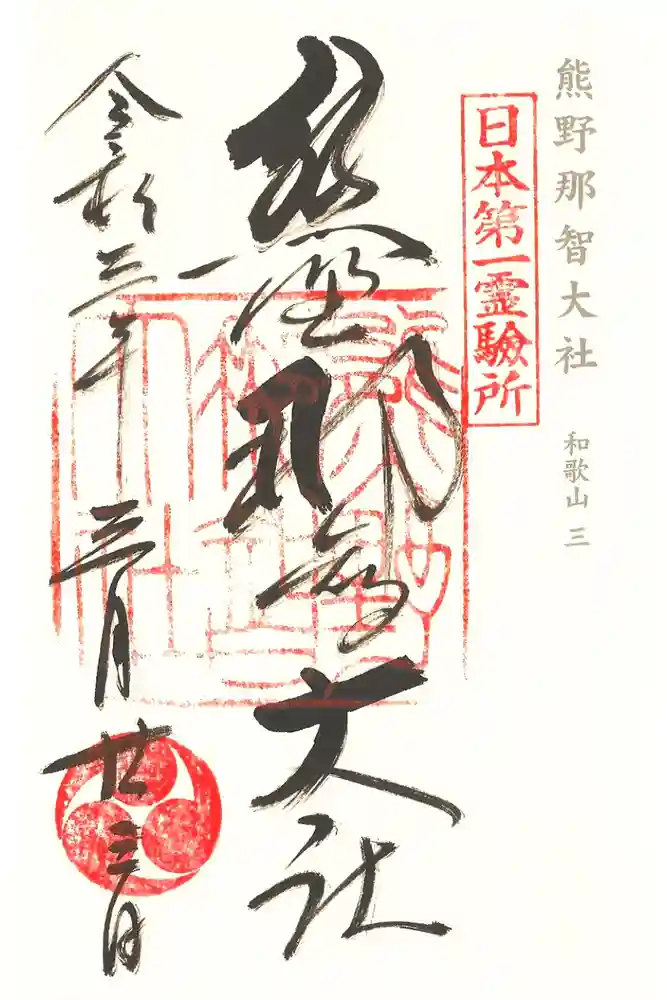 熊野那智大社
和歌山 三
日本第一霊験所
熊野那智大社
令和三年
三月
廿三日